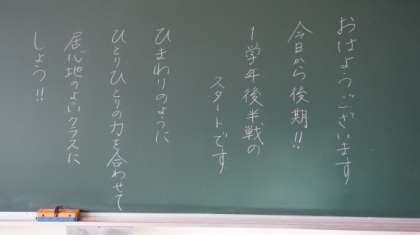 おはようございます
今日から後期!!
1学年後半戦の
スタートです
ひまわりのように
ひとりひとりの力を合わせて
居心地のよいクラスに
しょう!!